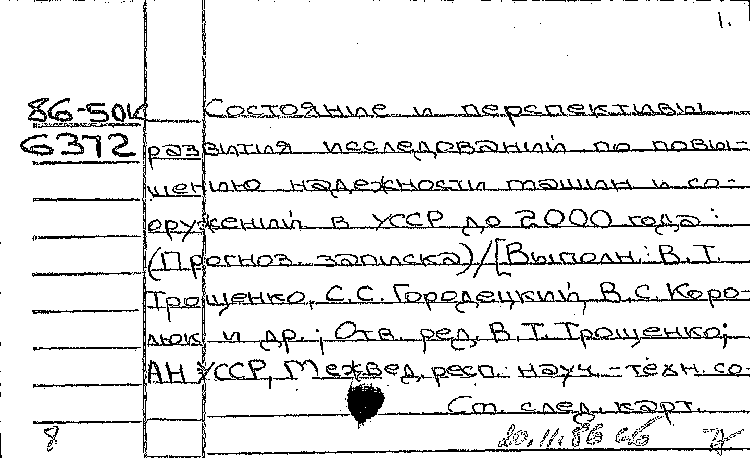 1.
86-50к Состояние и перспективы
6372 развития исследований по повы-
шению надежности машин и со-
оружений в УССР до 2000 года:
(Прогноз. записка)/[Выполн.: В.Т.
Трощенко, С.С. Городецкий, В.С. Коро-
люк и др.; Отв. ред. В.Т. Трощенко;
АН УССР, Межвед. респ. науч.-техн. со-
См. след. карт.
8 20.11.86